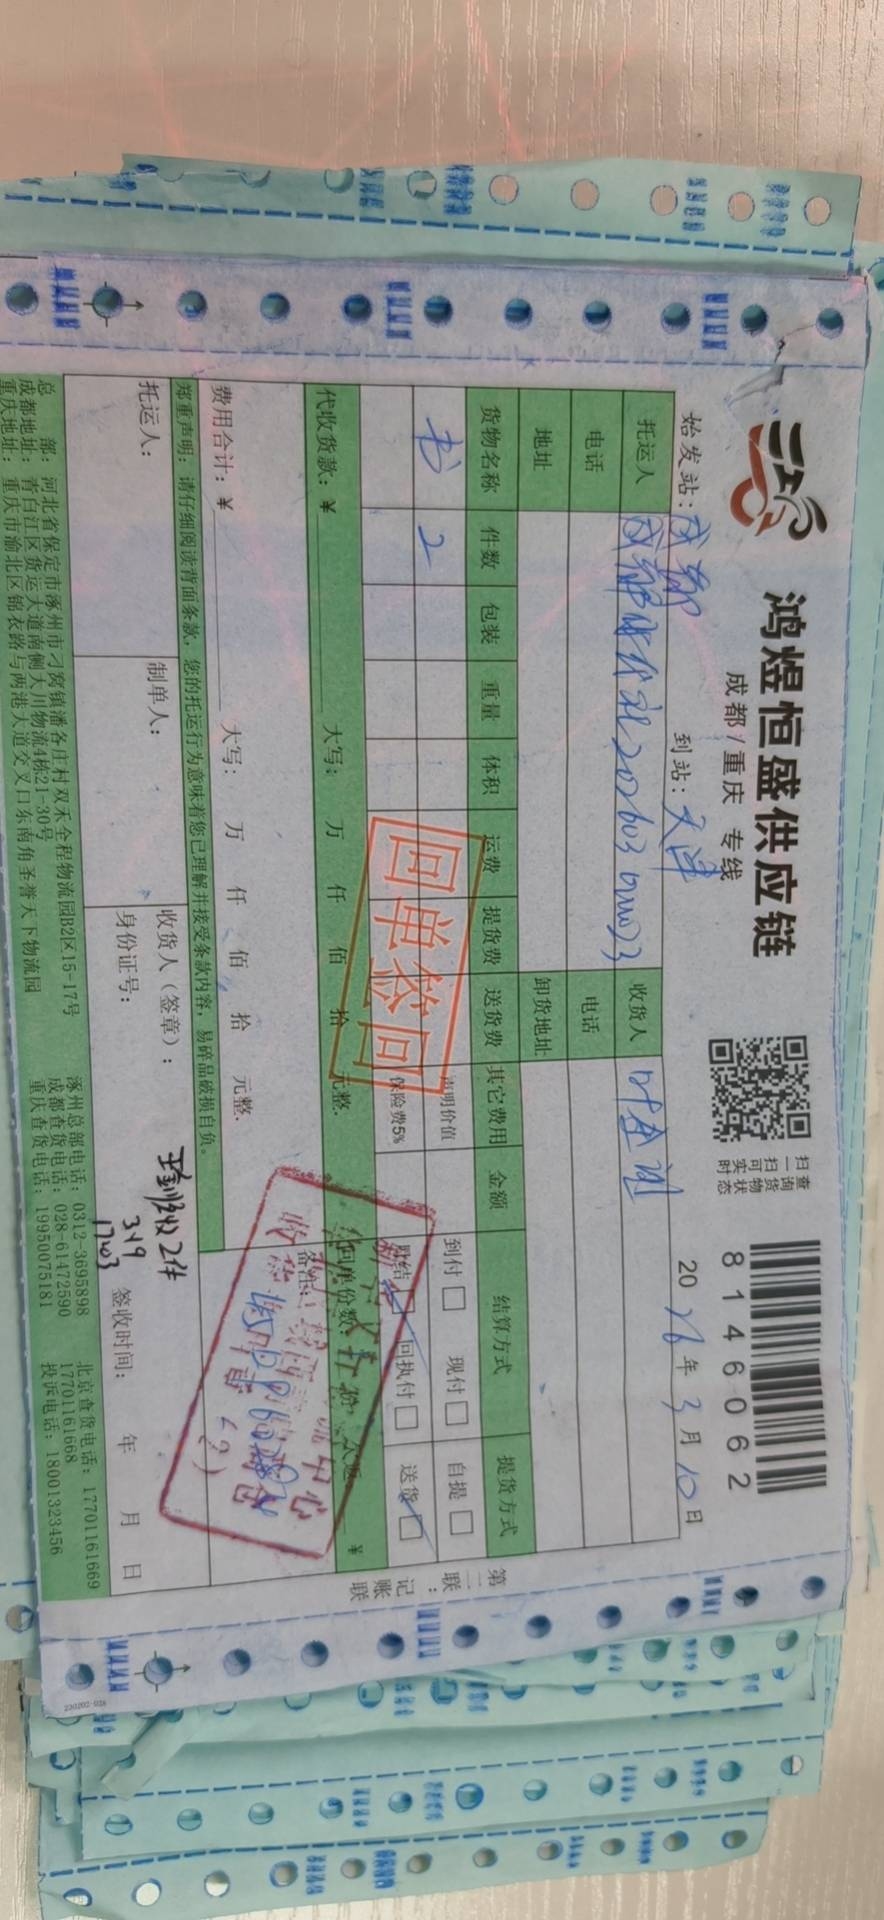 鸿煜恒盛供应链
成都/重庆 专线
扫一扫可实时
查询货物状态
8146062
始发站：成都
到站：天津
2026年3月10日
托运人
收货人
电话
电话
地址
卸货地址
货物名称 件数 包装 重量 体积 运费 提货费 送货费 其它费用 金额 结算方式 提货方式
书 2
声明价值
到付□ 现付□ 自提□
保险费5%
回执付□ 送货□
回单签回
代收货款：¥ 大写： 万 仟 佰 拾 元整.
回单份数：
备注：
费用合计：¥ 大写： 万 仟 佰 拾 元整.
郑重声明：请仔细阅读背面条款，您的托运行为意味着您已理解并接受条款内容，易碎品破损自负。
托运人：
制单人：
收货人（签章）：
收2件
3.19
身份证号：
签收时间： 年 月 日
总部：河北省保定市涿州市刁窝镇潘各庄村双禾全程物流园B2区15-17号
涿州总部电话：0312-3695898
北京查货电话：17701161669
成都地址：青白江区货运大道南侧大川物流4栋21-30号
成都查货电话：028-61472590
17701161668
重庆地址：重庆市渝北区锦衣路与两港大道交叉口东南角圣誉天下物流园
重庆查货电话：19950075181
投诉电话：18001323456
第二联：记账联